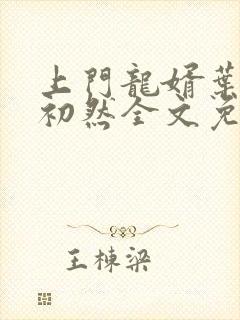 上門龍婿葉
初然全文免
王棟梁